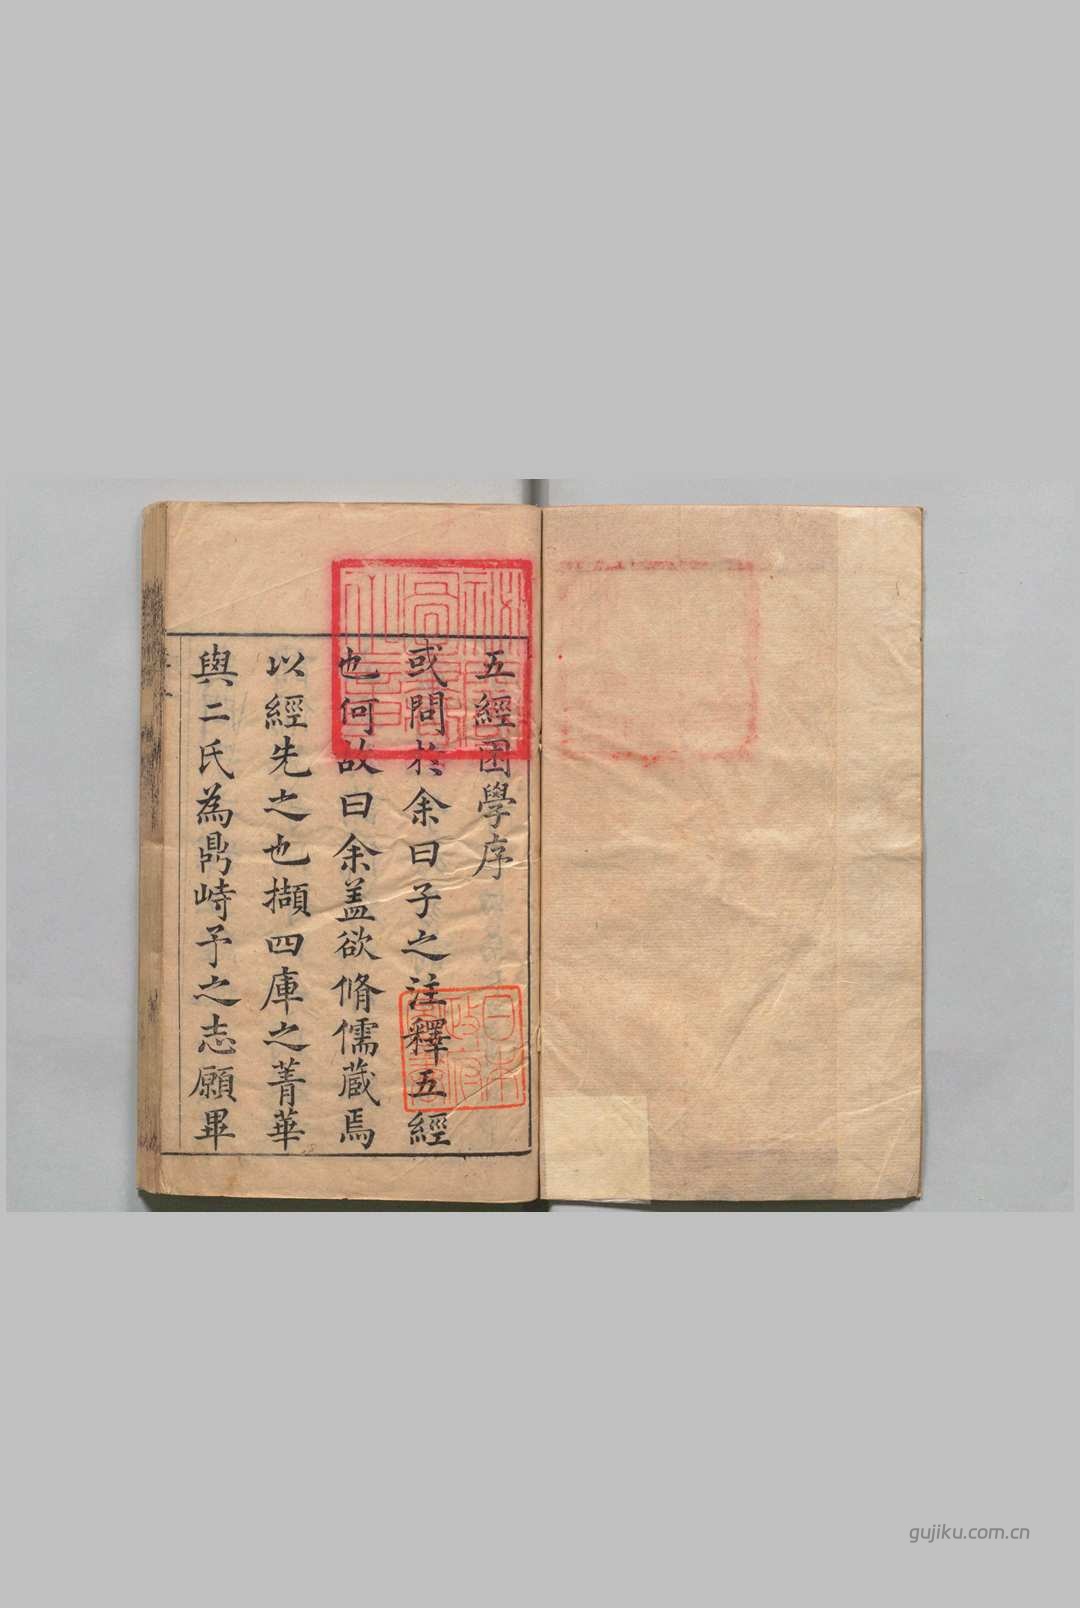 五經困學序
或問於余曰子之注釋五經
也何故曰余盖欲脩儒蔵焉
以經先之也擷四庫之菁華
與二氏為鼎峙予之志願畢
日本政府圖書
gujiku.com.cn